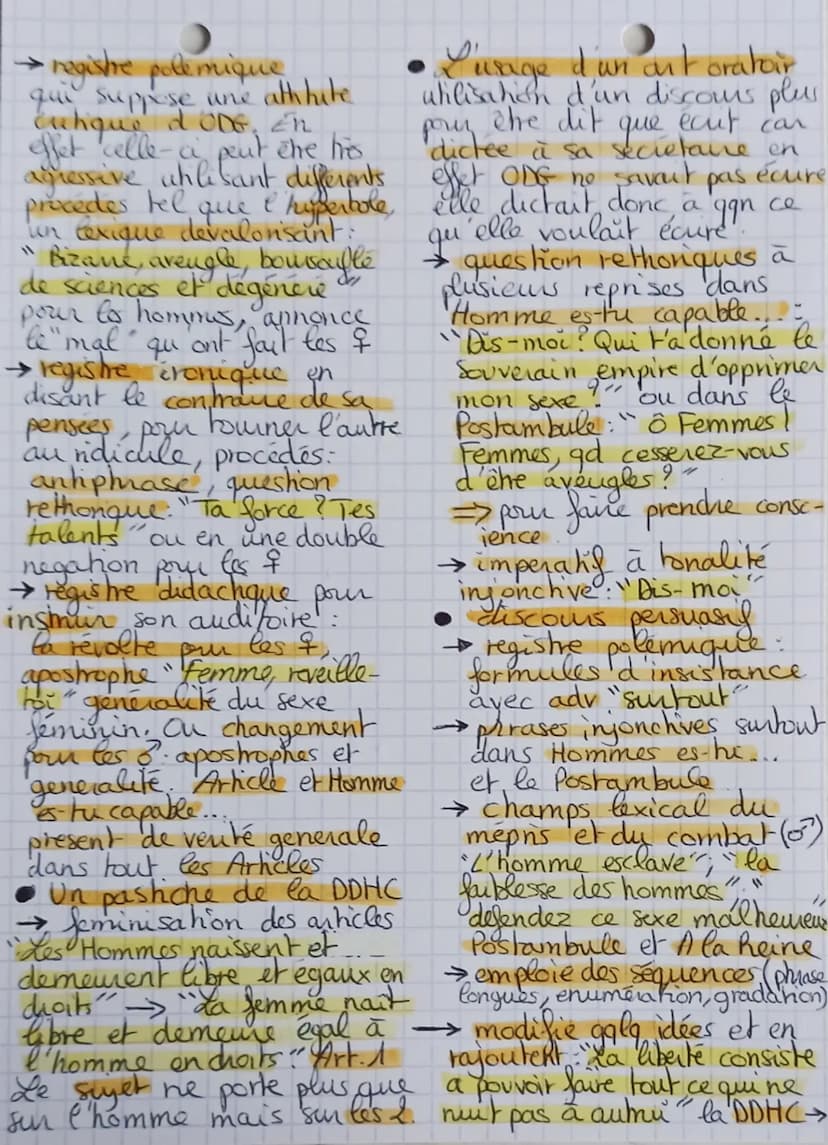 → registre polémique
qui suppose une attitute
critique d'ODG. En
effet celle-ci peut être très
agressive utilisant différents
procédés tel que l'hyperbole,
un lexique dévalorisant :
"Bizarre, aveugle, boursoufflé
de sciences et dégénéré"
pour les hommes, annonce
le "mal" qu'ont fait les ♀
→ registre ironique en
disant le contraire de sa
pensées, pour tourner l'autre
au ridicule, procédés :
antiphrase, question
rethorique : "Ta force ? Tes
talents" ou en une double
negation pour les ♀
→ régistre didactique pour
instruire son auditoire :
la révolte pour les ♀,
apostrophe "Femme, réveille-
toi" généralité du sexe
féminin. Ou changement
pour les ♂ : apostrophes et
generalité. Article et Homme
es-tu capable...
présent de vérité generale
dans tout les Articles
● Un pastiche de la DDHC
→ féminisation des articles
"Les Hommes naissent et
demeurent libre et égaux en
droits" → "La femme nait
libre et demeure égal à
l'homme en droits" Art.1
Le sujet ne porte plus que
sur l'homme mais sur les 2.
● L'usage d'un art oratoir
utilisation d'un discours plus
pour être dit que écrit car
dictée à sa sécretaire en
effet ODG ne savait pas écrire
elle dictait donc à qqn ce
qu'elle voulait écrire.
→ question rethoriques à
plusieurs reprises dans
Homme es-tu capable... :
"Dis-moi ? Qui t'a donné le
souverain empire d'opprimer
mon sexe ?" ou dans le
Postambule : "Ô Femmes !
Femmes, qd cesserez-vous
d'être aveugles ?"
⇒ pour faire prendre consc-
ience
→ impératif à tonalité
injonctive : "Dis-moi"
● discours persuasif
→ registre polémique :
formules d'insistance
avec adv "surtout"
→ phrases injonctives surtout
dans Hommes es-tu...
et le Postambule
→ champs lexical du
mépris et du combat (♂)
"L'homme esclave" ; "la
faiblesse des hommes", "
défendez ce sexe malheureux"
Postambule et A la Reine
→ emploie des séquences (phrase
longues, enumération, gradation)
→ modifie qqlq idées et en
rajoutent : "La liberté consiste
a pouvoir faire tout ce qui ne
nuit pas à autrui" la DDHC →